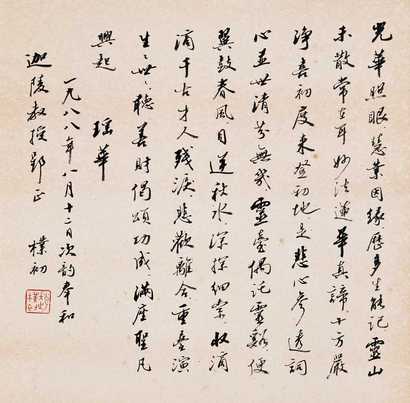 光華照眼慧業因緣歷多生能記靈山
未散常在耳妙法蓮華真諦十方嚴
淨喜初度來登初地是悲心參透詞
心並世清芬無幾靈臺偶託靈谿便
翼鼓春風目送秋水深探細索收滴
滴千古才人殘淚悲歡離合重疊演
生々世々聽善財偈頌功成滿座聖凡
興起 瑤華
一九八八年八月十二日次韵奉和
迦陵教授郢正 樸初